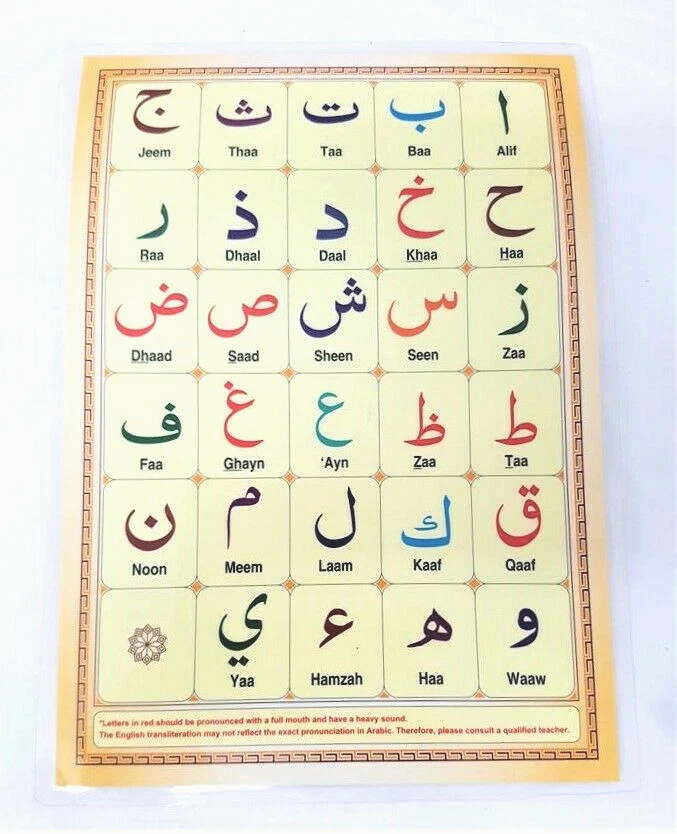 ا ب ت ث ج
Alif Baa Taa Thaa Jeem
ح خ د ذ ر
Haa Khaa Daal Dhaal Raa
ز س ش ص ض
Zaa Seen Sheen Saad Dhaad
ط ظ ع غ ف
Taa Zaa ‘Ayn Ghayn Faa
ق ك ل م ن
Qaaf Kaaf Laam Meem Noon
و ه ء ي
Waaw Haa Hamzah Yaa
*Letters in red should be pronounced with a full mouth and have a heavy sound.
The English transliteration may not reflect the exact pronunciation in Arabic. Therefore, please consult a qualified teacher.